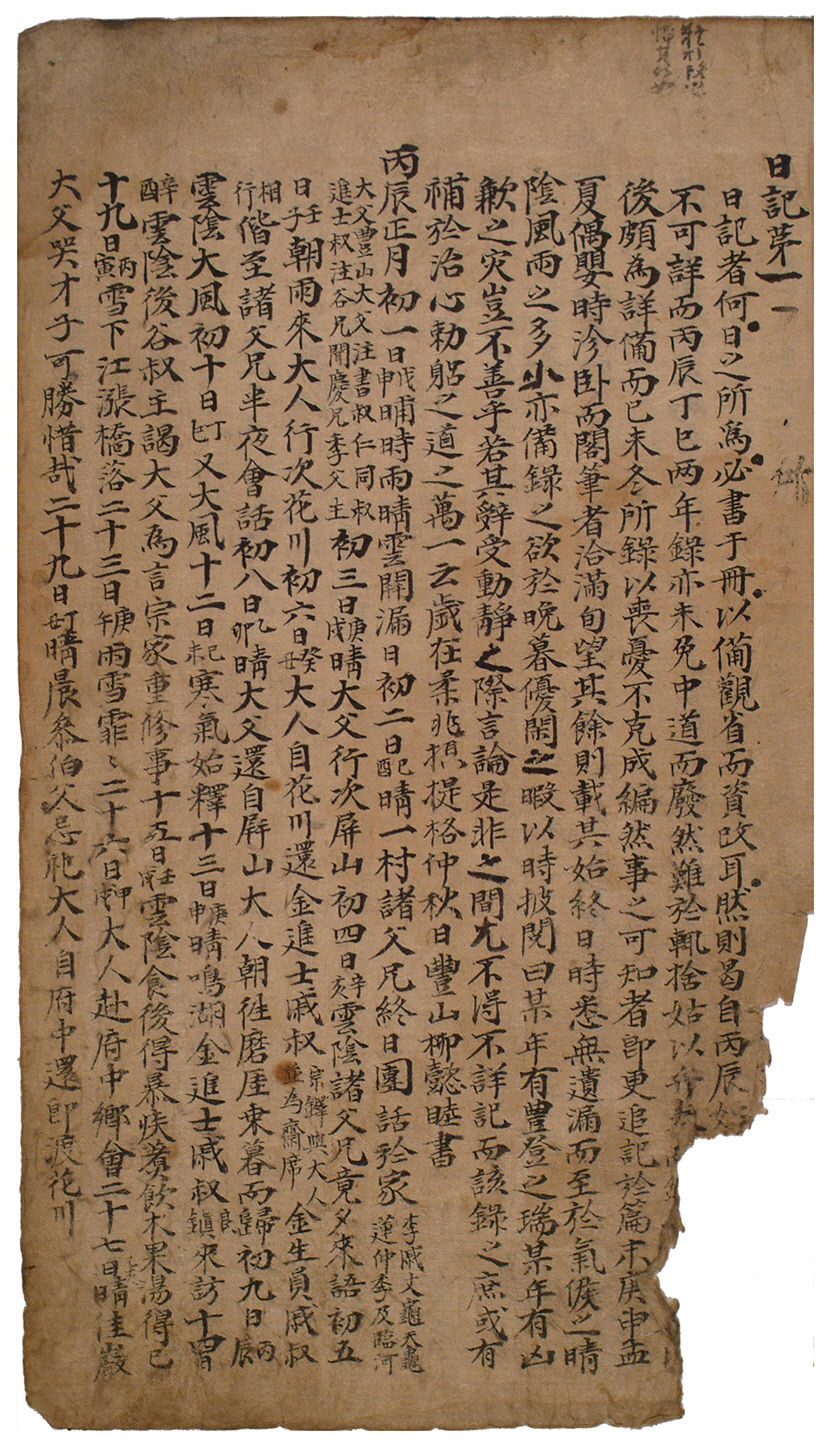 日記第一
日記者何日之所爲必書于冊以備觀省而資攷耳然則曷自丙辰始
不可詳而丙辰丁巳两年錄亦未免中道而廢然難於輒捨姑以
後頗爲詳備而已未冬所錄以喪憂不克成編然事之可知者卽更追記於篇末庚申孟
夏偶嬰時沴臥而閣筆者洽滿旬望其餘則載其始終日時悉無遺漏而至於氣候之晴
陰風雨之多小亦備錄之欲於晚暮優閑之暇以時披閱曰某年有豊登之瑞某年有凶
歉之灾豈不善乎若其辭受動靜之際言論是非之間尤不得不詳記而該錄之庶或有
補於治心勅躬之道之萬一云歲在柔兆攝提格仲秋日豐山柳懿睦書
丙辰正月初一日戊申晡時雨晴雲開漏日初二日己酉晴一村諸父兄終日團話於家李戚丈龜天龜蓮仲季及臨河
大父豊山大父注書叔仁同叔進士叔注谷兄聞慶兄季父主初三日庚戌晴大父行次屏山初四日辛亥雲陰諸父兄竟夕來語初五
日壬子朝雨來大人行次花川初六日癸丑大人自花川還金進士戚叔宗鐸與大人並爲齋席金生員戚叔
相行偕至諸父兄半夜會話初八日乙卯晴大父還自屛山大人朝徃磨厓乘暮而歸初九日丙辰
雲陰大風初十日丁巳又大風十二日己未寒氣始釋十三日庚申晴鳴湖金進士戚叔鎭來訪十四日
醉雲陰後谷叔主謁大父爲言宗家重修事十五日壬戌雲陰食後得暴疾羹飮木果湯得已
十九日丙寅雪下江漲橋落二十三日庚午雨雪霏〻二十六日大人赴府中鄕會二十七日晴佳巖
大父哭才子可勝惜哉二十九日丁丑晴晨參伯父忌祀大人自府中還卽渡花川